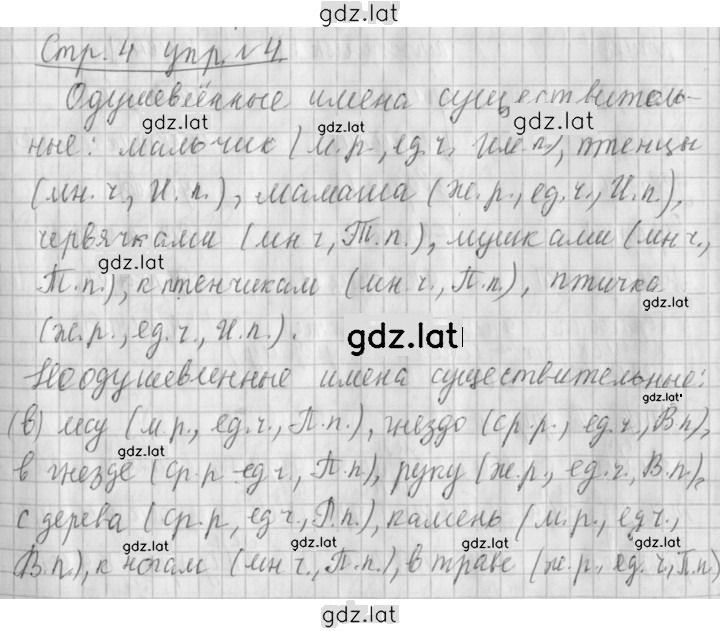 gdz.lat
Стр. 4 упр. №4
Одушевлённые имена существитель-
gdz.lat gdz.lat gdz.lat
ные: мальчик (м.р., ед.ч., Им.п.), птенцы
(мн.ч., И.п.), мамаша (ж.р., ед.ч., И.п.),
червячками (мн ч, Т.п.), мушками (мн ч.,
gdz.lat
Т.п.), к птенчикам (мн.ч., П.п.), птичка
gdz.lat
(ж.р., ед.ч., И.п.).
gdz.lat
Неодушевленные имена существительные:
gdz.lat
(в) лесу (м.р., ед.ч., П.п.), гнездо (ср.р., ед.ч., В.п),
gdz.lat
в гнезде (ср.р ед ч, П.п), руку (ж.р., ед.ч., В.п.),
с дерева (ср.р, ед ч., Р.п.), камень (м.р., ед ч.,
gdz.lat gdz.lat gdz.lat gdz.lat
В.п.), к ногам (мн ч., П.п.), в траве (ж.р., ед. ч., П.п)
gdz.lat